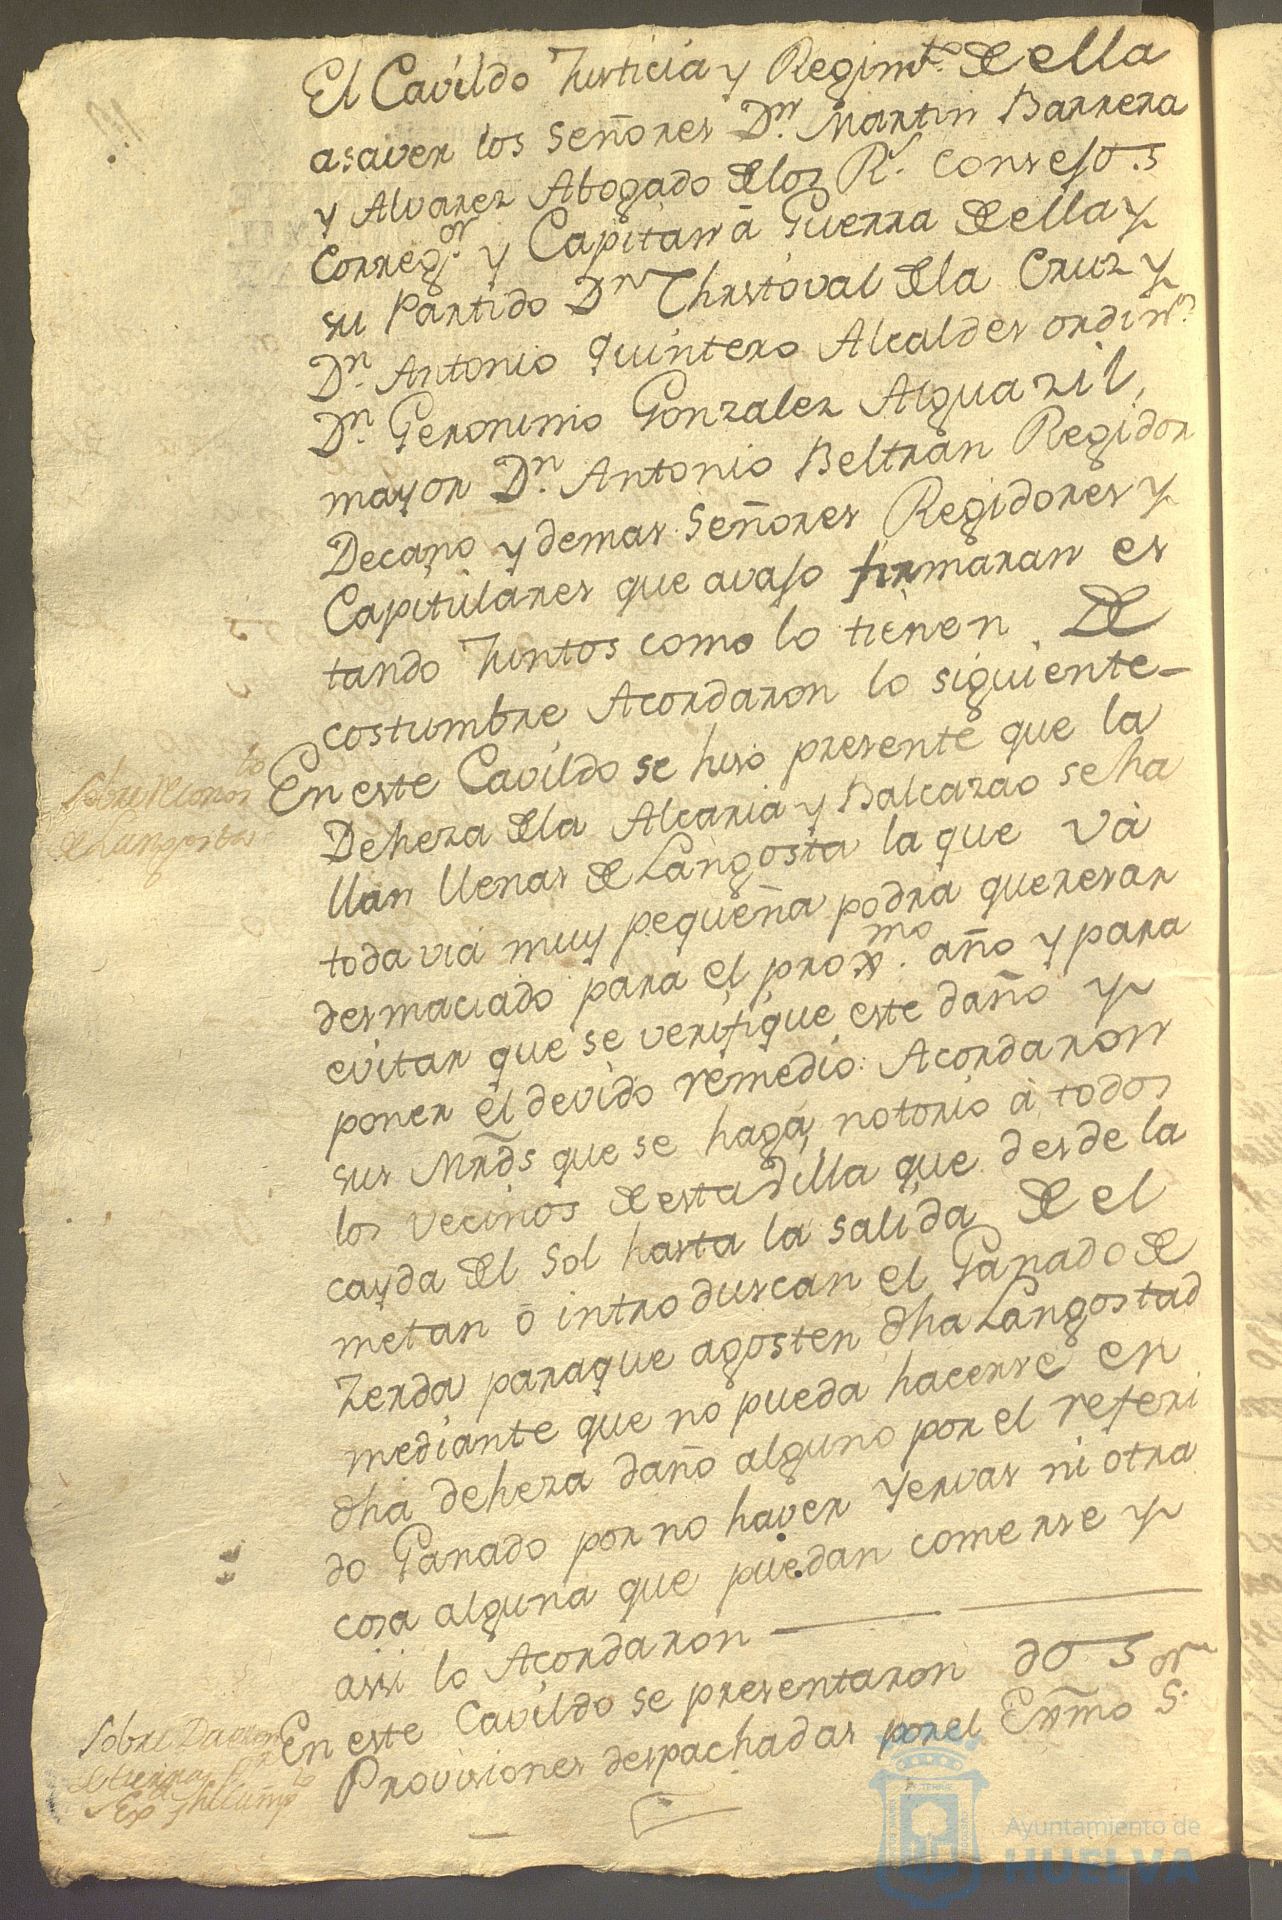 El Cavildo Justicia y Regimto. de ella
asaver los Señores Dn. Martin Barrera
y Alvarez Abogado de los Rs. Consejos
Corregor. y Capitan à Guerra de ella y
su Partido Dn Christoval de la Cruz y
Dn. Antonio Quintero Alcaldes ordins.
Dn. Geronimo Gonzalez Alguazil
mayor Dn. Antonio Beltran Regidor
Decano y demas Señores Regidores y
Capitulares que avajo firmaran es
tando Juntos como lo tienen de
costumbre Acordaron lo siguiente
Sobre
de Langosta
En este Cavildo se hiso presente que la
Deheza de la Alcaria y Balcazao se ha
llan llenas de Langosta la que và
todavia muy pequeña podra queresar
desmaciado para el proxmo. año y para
evitar que se verifique este daño y
poner el devido remedio: Acordaron
sus Mrds que se haga notorio à todos
los vecinos de esta Villa que desde la
cayda del Sol hasta la salida de el
metan ò introduscan el Ganado de
Zerda paraque agosten dha Langostad
mediante que no pueda hacerse en
dha deheza daño alguno por el referi
do Ganado por no haver Yervas ni otra
cosa alguna que puedan comerse y
assi lo Acordaron
Sobre
En este Cavildo se presentaron dos
Provisiones despachadas por el Exmo Sor
Ayuntamiento de
HUELVA